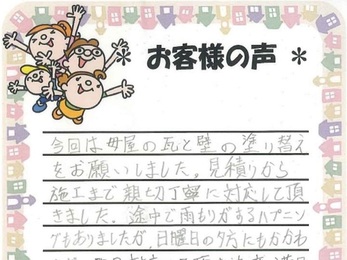 ＊ お客様の声 ＊
今回は母屋の瓦と壁の塗り替え
をお願いしました。見積りから
施工まで親切丁寧に対応して頂
きました。途中で雨もりがするハプニン
グもありましたが、日曜日の夕方にもかかわ